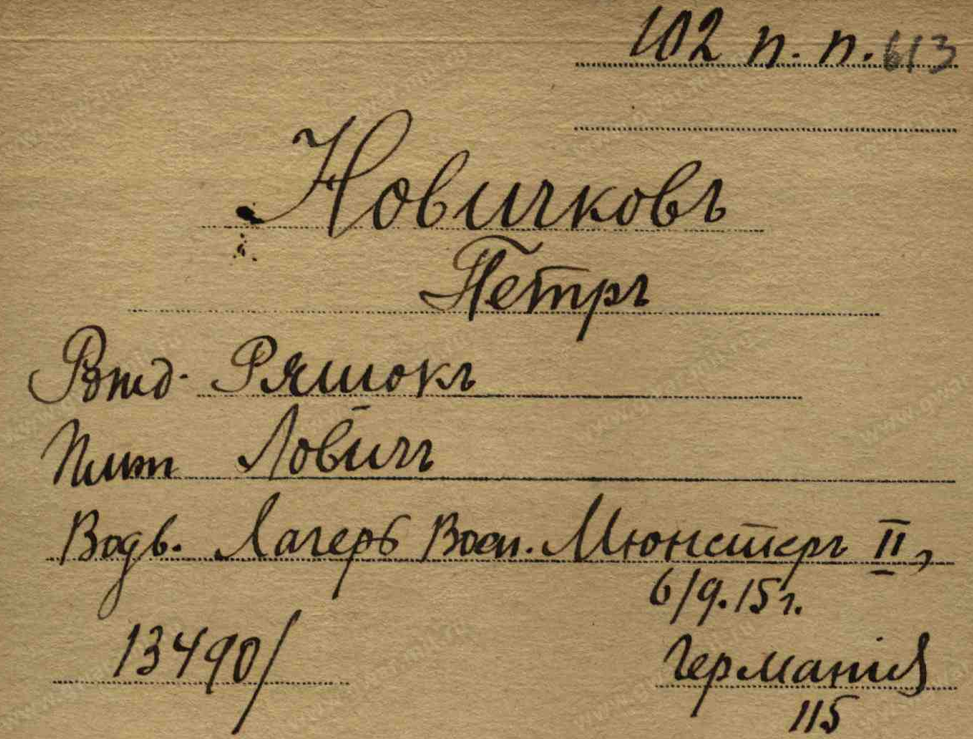 102 п. п. 613
Новичковъ
Петръ
Вятд. Ряшокъ
Плѣн Ловичъ
Водв. Лагерь Воен. Мюнстеръ II,
6/9.15 г.
13490/
Германія
115